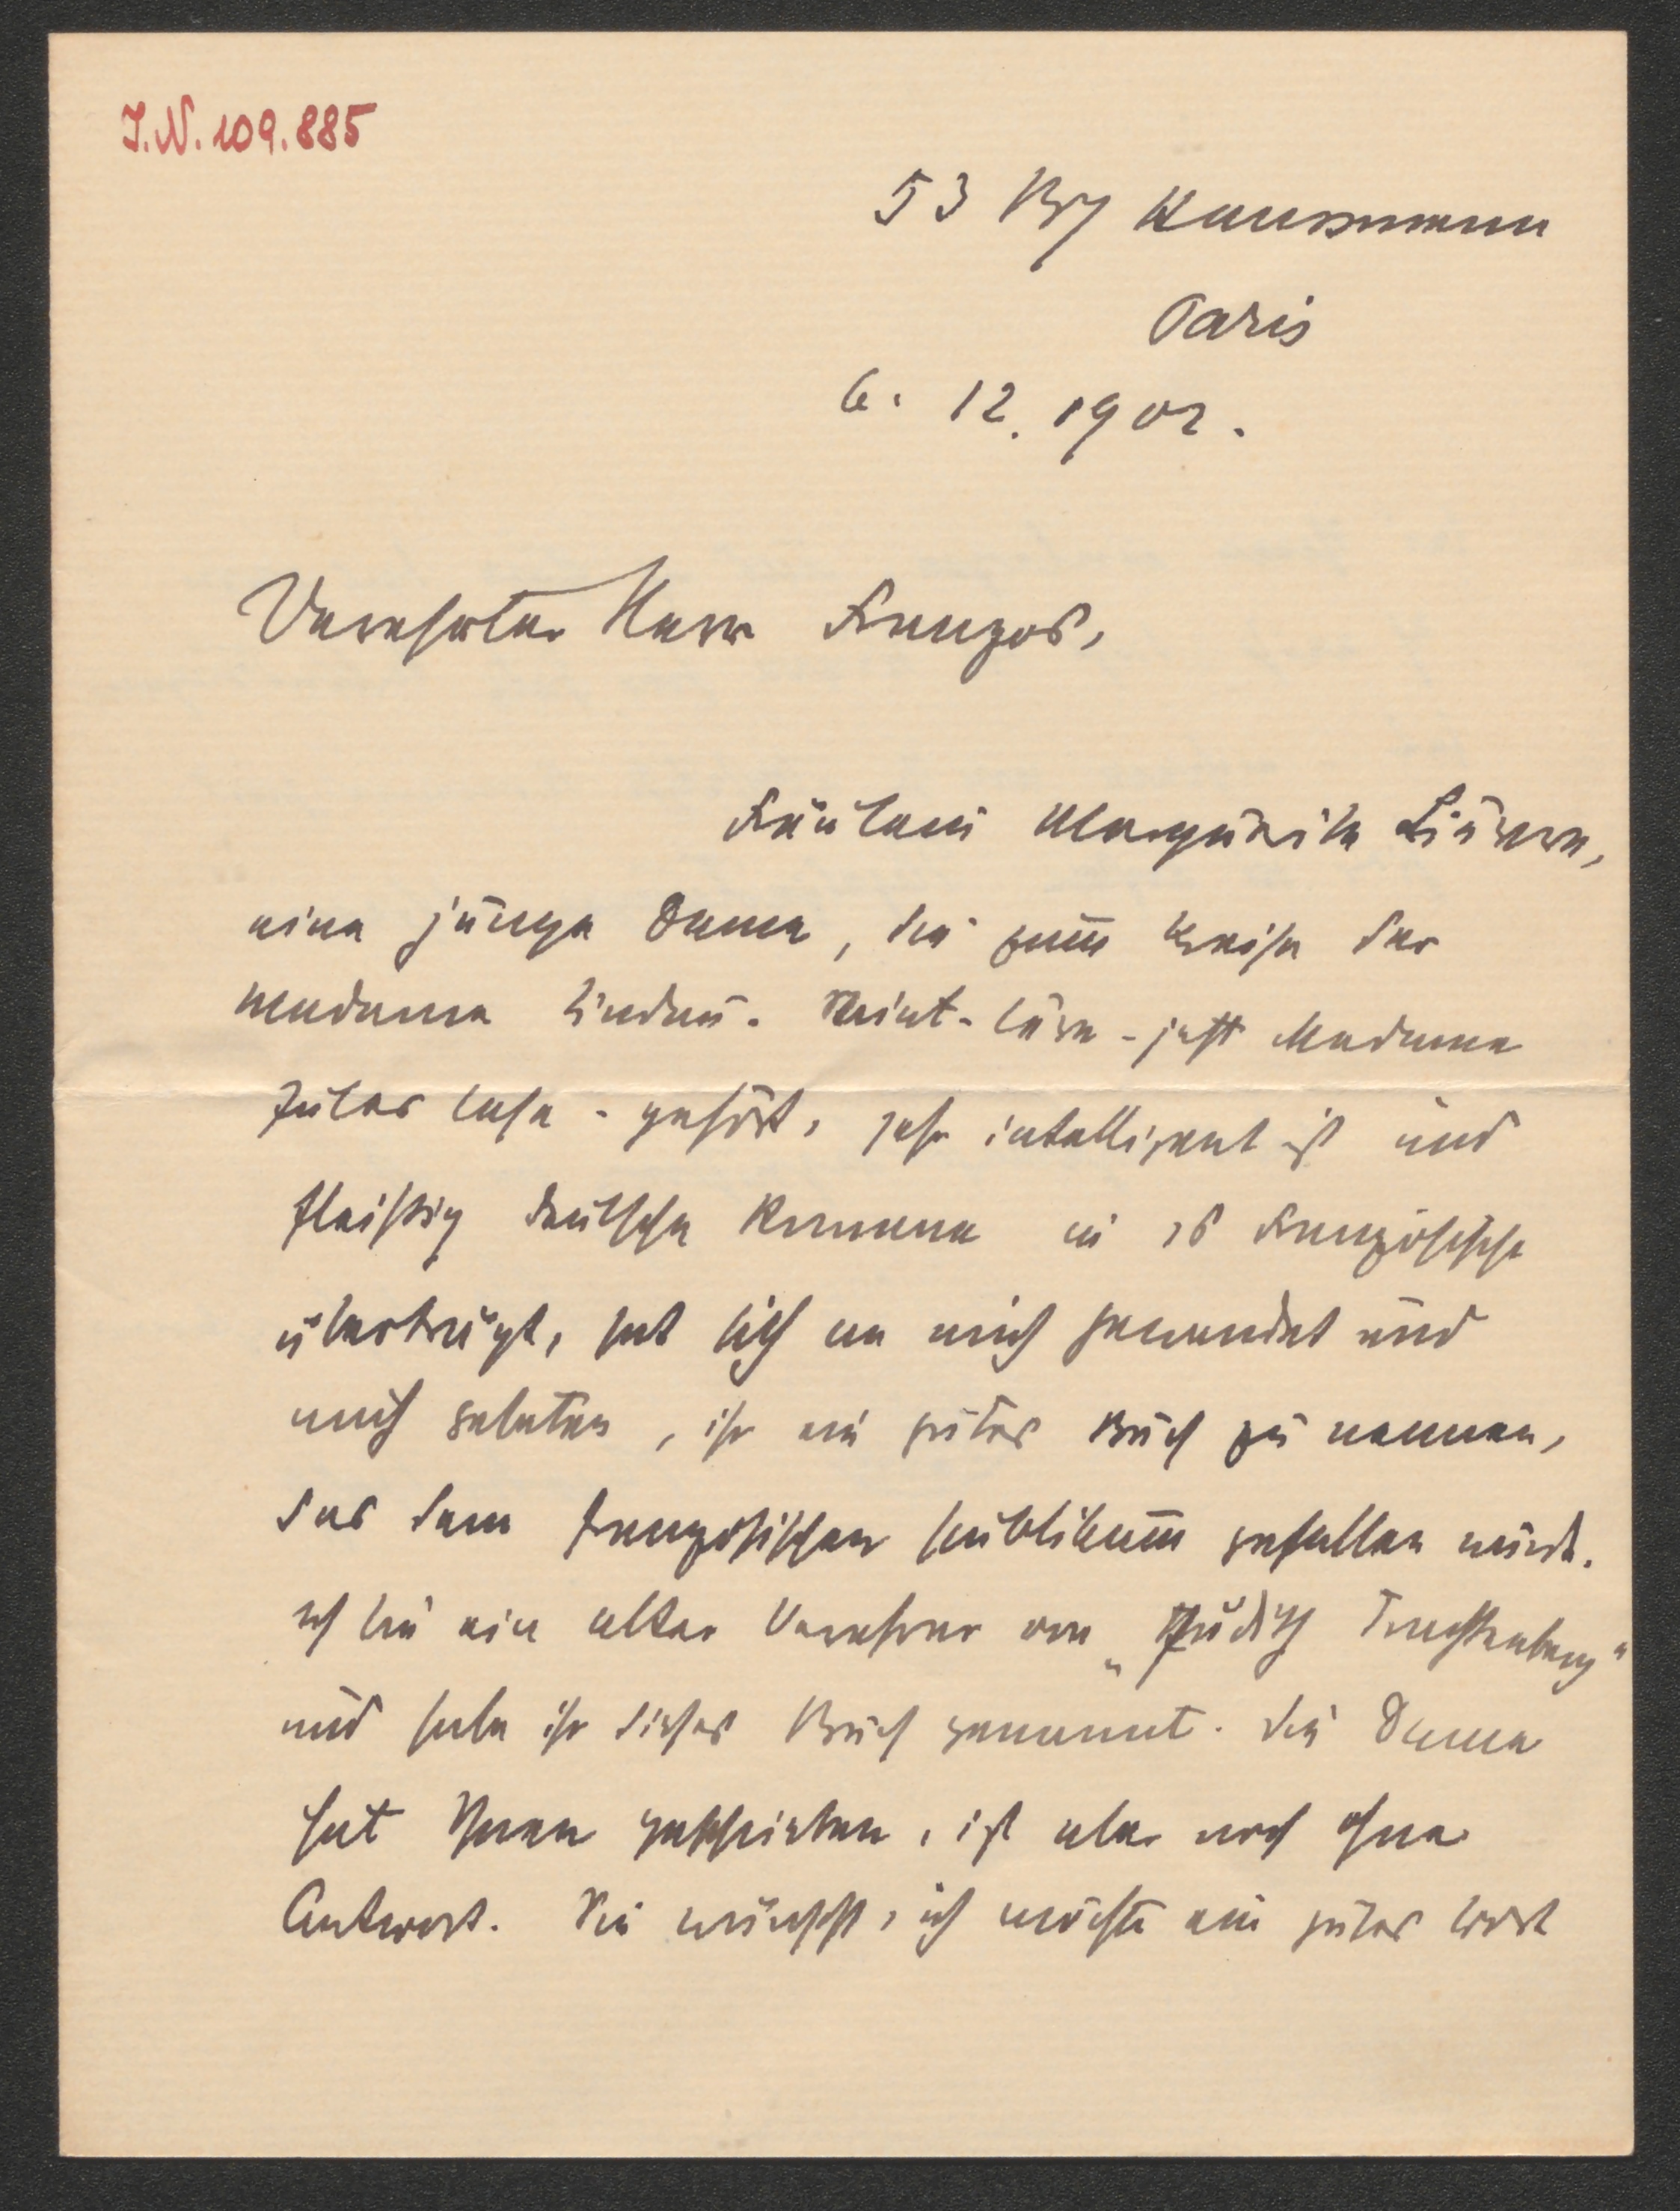 I.N. 109.885
53 Bd Haussmann
Paris
6. 12. 1902.
Verehrter Herr Franzos,
Fräulein Marguerite
eine junge Dame, die zum Kreise der
Madame Lindau. Saint-Cère - jetzt Madame
Jules Case - gehört, sehr intelligent ist und
fleißig deutsche Romane in's Französische
überträgt, hat sich an mich gewendet und
mich gebeten, ihr ein gutes Buch zu nennen,
das dem französischen Publikum gefallen würde.
Ich bin ein alter Verehrer von „Judith Trachtenberg"
und habe ihr dieses Buch genannt. Die Dame
hat Ihnen geschrieben, ist aber noch ohne
Antwort. Sie wünscht, ich möchte ein gutes Wort